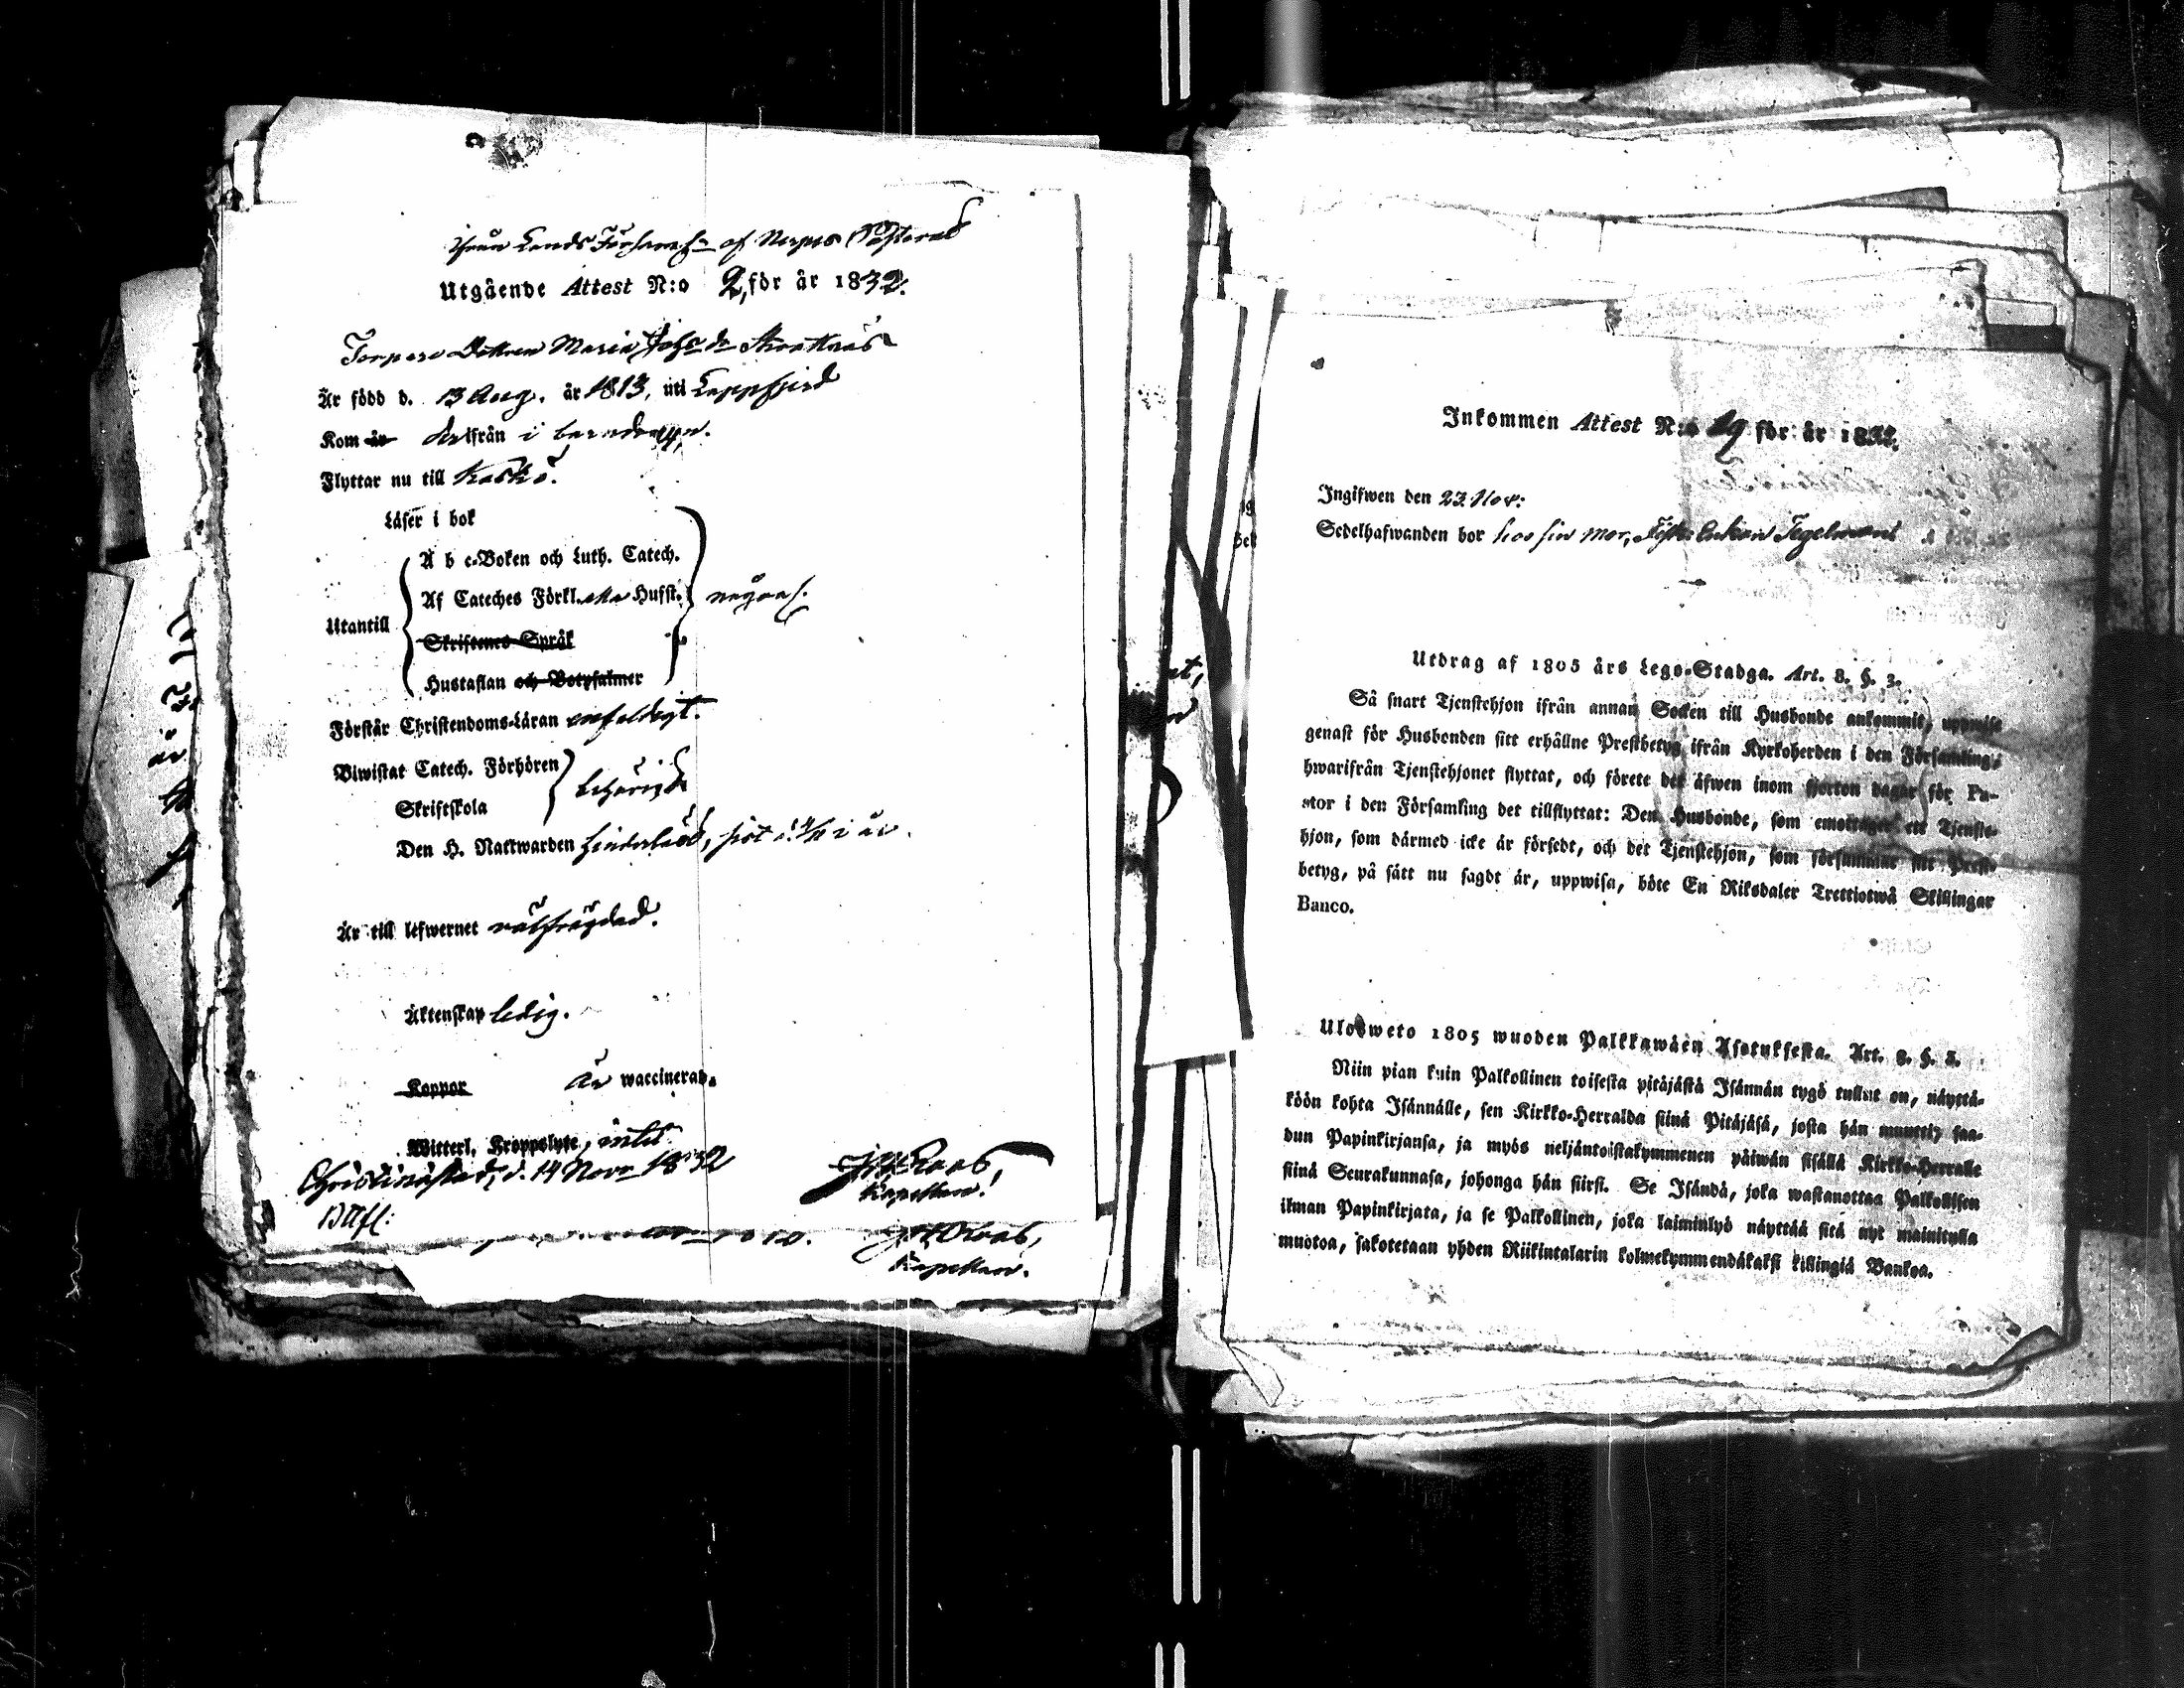 ifrån Lands Församl:n af Nerpes Pastorat
Utgående Attest N:o 2, för år 1832.
Torpare Dottren Maria Johsdr
Är född d. 13 Aug. år 1813, uti Lappfjerd
Kom år ifrån i barndomen.
Flyttar nu till Kaskö.
Läser i bok
A b c-Boken och Luth. Catech.
Af Cateches Förkl. Husst.
Utantill
Skriftenes Språk
Hustaflan och Botpsalmer
Förstår Christendoms-Läran enfaldigt.
Biwistat Catech. Förhören
Skriftskola
behörigt
Den H. Nattwarden sist i år.
Är till lefwernet välfrägdad.
Äktenskap ledig.
Koppor är waccinerad.
Witterl. Kroppslyte, intet
Christinestad, d. 14 Nov. 1832
Kapellan.
Kapellan.
Inkommen Attest N:o 29 för år 1832.
Ingifwen den 23. Nov:
Sedelhafwanden bor hos sin mor, Enkan Tegelman
Utdrag af 1805 års Lego-Stadga. Art. 8. §. 3.
Så snart Tjenstehjon ifrån annan Socken till Husbonde ankommit, uppwise
genast för Husbonden sitt erhållne Prestbetyg ifrån Kyrkoherden i den Församling,
hwarifrån Tjenstehjonet flyttat, och förete det äfwen inom fjorton dagar för Pa-
stor i den Församling det tillflyttat: Den Husbonde, som emottager ett Tjenste-
hjon, som därmed icke är försedt, och det Tjenstehjon, som försummar sitt Prest-
betyg, på sätt nu sagdt är, uppwisa, böte En Riksdaler Trettiotwå Skillingar
Banco.
Ulosweto 1805 wuoden Palkkawäen Asetuksesta. Art. 8. §. 3.
Niin pian kuin Palkollinen toisesta pitäjästä Isännän tygö tullut on, näyttä-
köön kohta Isännälle, sen Kirkko-Herralda siinä Pitäjäsä, josta hän muutti, saa-
dun Papinkirjansa, ja myös neljäntoistakymmenen päiwän sisällä Kirkko-Herralle
siinä Seurakunnasa, johonga hän siirsi. Se Isändä, joka wastanottaa Palkollisen
ilman Papinkirjata, ja se Palkollinen, joka laiminlyö näyttää sitä nyt mainitulla
muotoa, sakotetaan yhden Riikintalarin kolmekymmendäkaksi killingiä Bankoa.